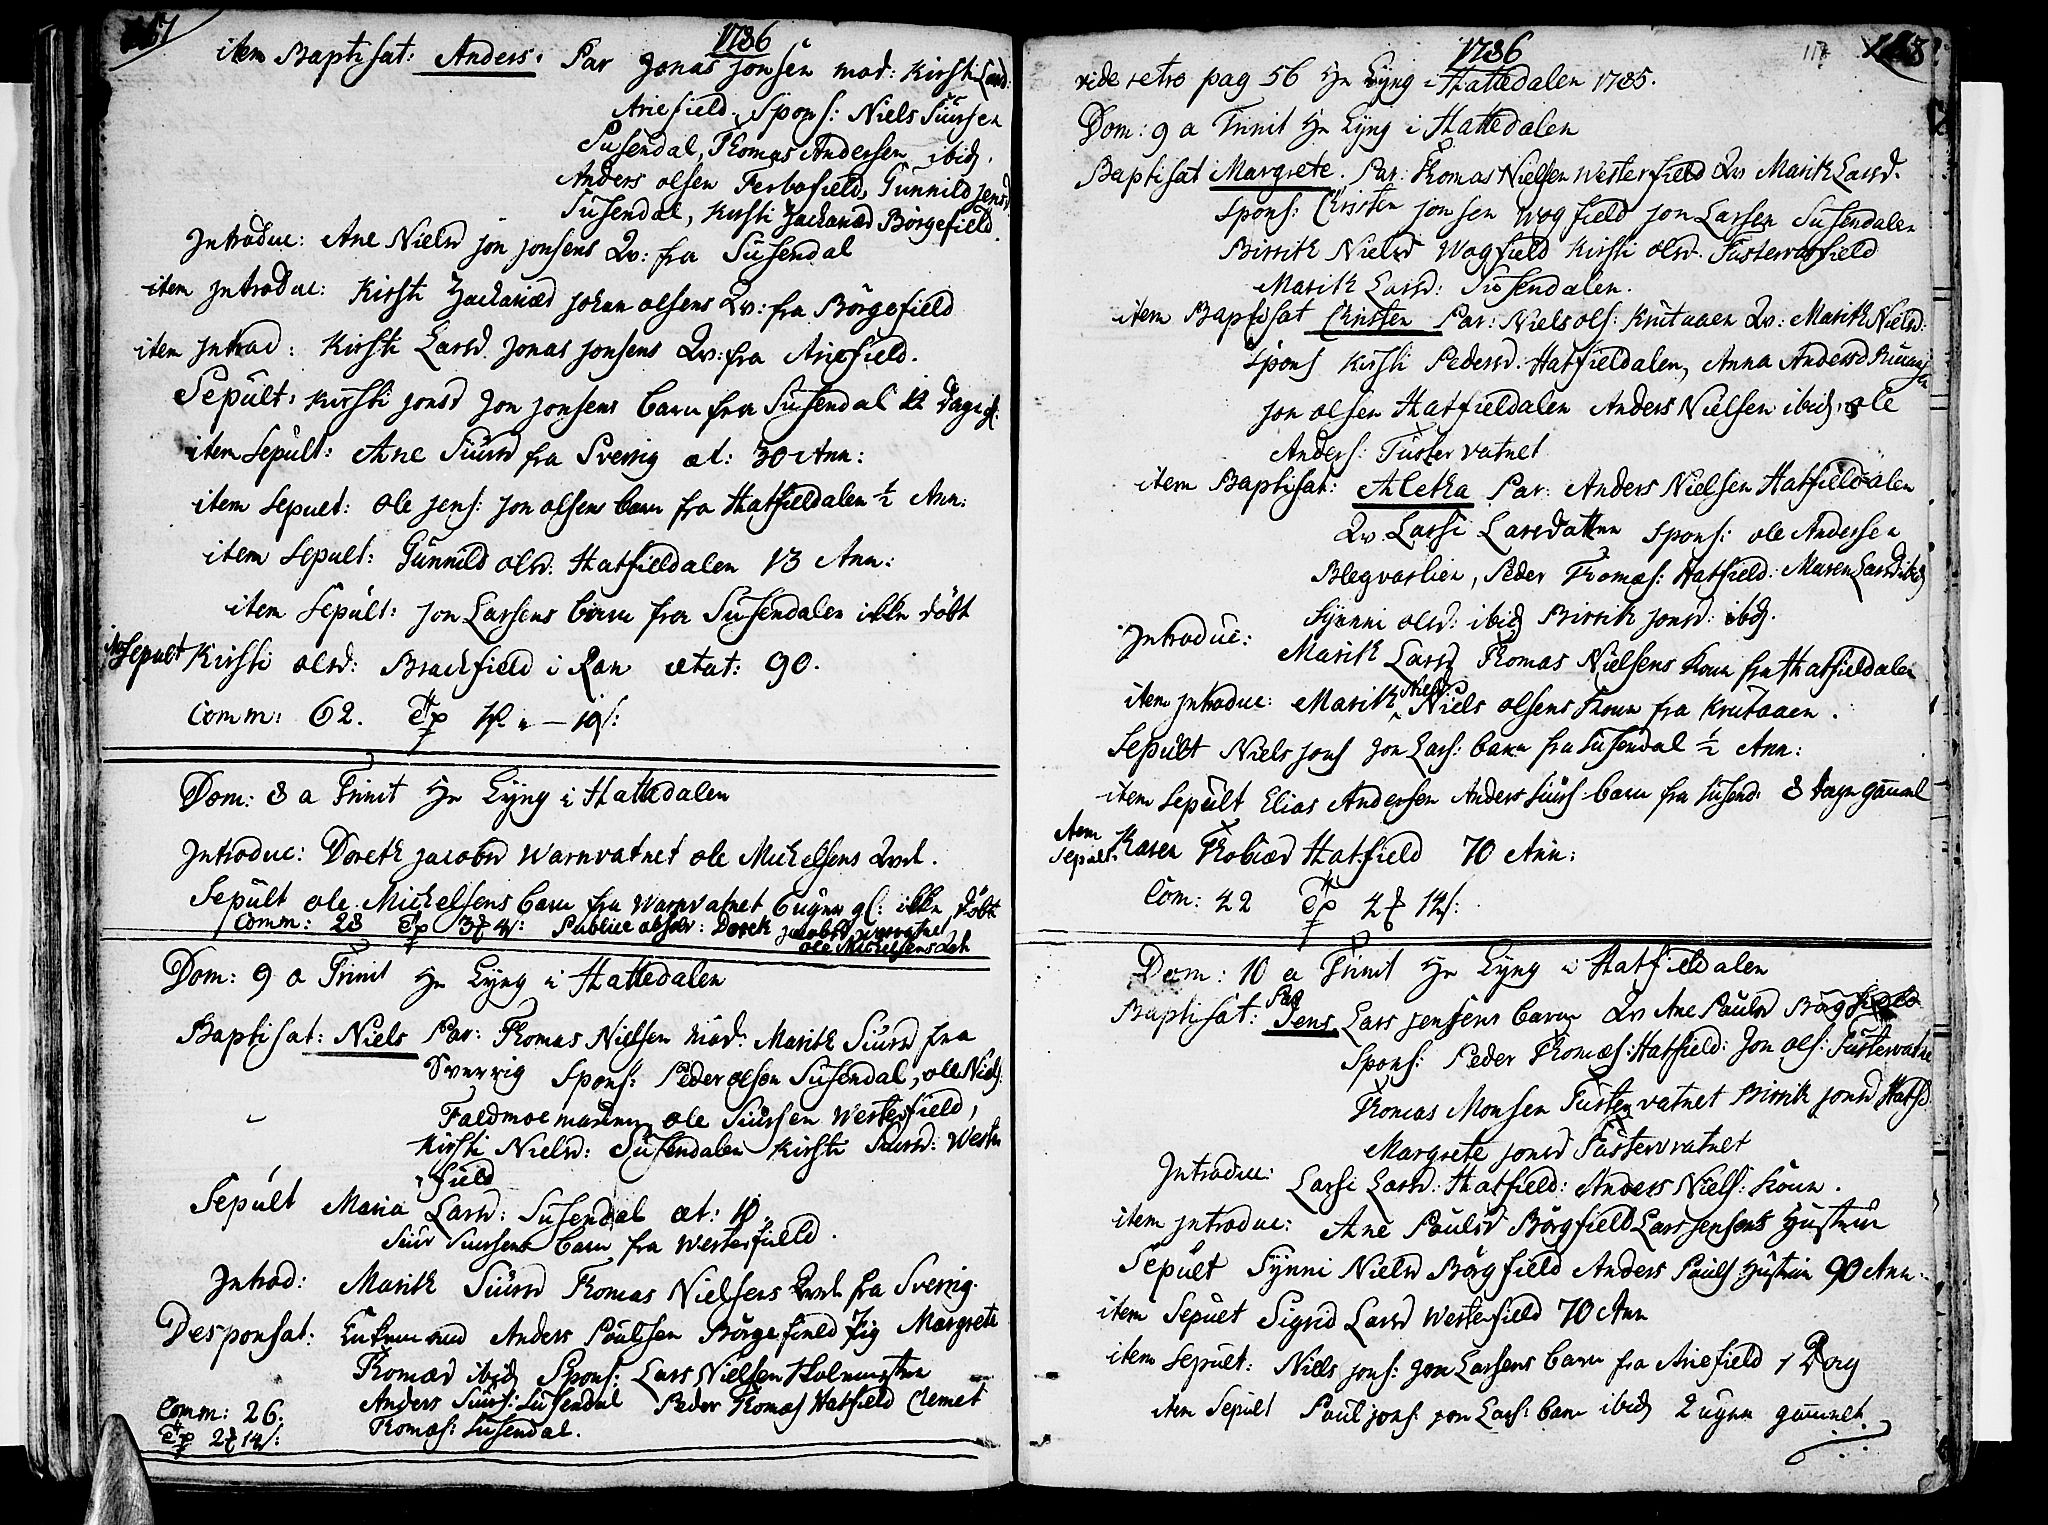 1786
item Baptisat: Anders. Par Jonas Jonsen mod: Kirsti Larsd:
Ariefield, Spons: Niels Siursen
Susendal, Thomas Andersen ibid,
Anders olsen Ferbofield, Gunnild Jensd
Susendal, Kirsti Zachariæd Børgefield.
Introduc: Ane Nielsd Jon Jonsens Qv: fra Susendal
item Introduc: Kirsti Zachariæd Johan olsens Qv: fra Börgefield
item Introd: Kirsti Larsd. Jonas Jonsens Qv: fra Ariefield.
Sepult: Kirsti Jonsd Jon Jonsens barn fra Susendal 12 Dage gl:
item Sepult: Ane Siursd fra Sverrig æt: 30 Ann:
item Sepult: ole Jens: Jon olsens barn fra Hatfieldalen ½ Ann:
item Sepult: Gunnild olsd. Hatfieldalen 13 Ann:
item Sepult: Jon Larsens barn fra Susendalen ikke döbt
item Sepult Kirsti olsd: Brackfield i Ran ætat: 90.
Comm: 62.
Dom: 8 a Trinit Hr Lyng i Hattedalen
Introduc: Doreth Jacobsd Warnvatnet ole Michelsens Qvd.
Sepult ole Michelsens barn fra Warnvatnet 6 ugers gl: ikke döbt
Comm: 28 Publice absolv: Doreth Jacobsd
ole Michelsens
Dom: 9 a Trinit Hr Lyng i Hattedalen
Baptisat: Niels Par: Thomas Nielsen mod: Marith Siursd fra
Sverrig Spons: Peder olsen Susendal, ole Niels:
Faldmoe ole Siursen Westerfield,
Kirsti Nielsd: Susendalen Kirsti Siursd: Wester
field
Sepult Maria Larsd: Susendal æt: 10,
Siur Siursens barn fra Westerfield.
Introd: Marith Siursd Thomas Nielsens Qvd. fra Sverrig.
Desponsat: Anders Poulsen Börgefield Pig Margrete
Thomæd ibid Spons: Lars Nielsen
Anders Siurs: Susendal Peder Thomæs Hatfield Clemet
Comm: 26. Thomæs: Susendal.
1786
vide retro pag 56 Hr Lyng i Hattedalen 1785.
Dom: 9 a Trinit Hr Lyng i Hattedalen
Baptisat Margrete. Par: Thomas Nielsen Westerfield Qv Marith Larsd.
Spons: Christen Jonsen Wogfield Jon Larsen Susendalen
Birrith Nielsd Wogfield Kirsti olsd. Fustervasfield
Marith Larsd: Susendalen.
item Baptisat Christen Par: Niels ols: Krutaaen Qv: Marith Nielsd:
Spons Kirsti Pedersd. Hatfieldalen, Anna Andersd
Jon olsen Hatfieldalen Anders Nielsen ibid, ole
Anders: Fustervatnet
item Baptisat: Aletha Par: Anders Nielsen Hatfieldalen
Qv. Larsi Larsdatter Spons: ole Andersen
Blegvaslien, Peder Thomæs: Hatfield: Maren Larsd ibid
Synni olsd: ibid Birrith Jonsd: ibid.
Introduc: Marith Larsd Thomas Nielsens Kone fra Hatfieldalen
item Introduc: Marith Nielsd Niels olsens Kone fra Krutaaen.
Sepult Niels Jons Jon Lars: barn fra Susendal ½ Ann:
item Sepult Elias Andersen Anders Siurs barn fra Susend: 8 dage gammel
item Sepult: Karen Thobiæd Hatfield 70 Ann:
Com: 22
Dom: 10 a Trinit Hr Lyng i Hatfieldalen
Baptisat: Jens Par Lars Jensens barn Qv Ane Paulsd
Spons: Peder Thomæs: Hatfield: Jon ols: Fustervatne
Thomas Monsen Fustervatnet Birrith Jonsd Hatfd
Margrete Jonsd Fustervatnet
Introduc: Larsi Larsd: Hatfield: Anders Niels: Kone.
item Introduc: Ane Poulsd Börgfield Lars Jensens Hustrue
Sepult Synni Nielsd Börgfield Anders Pouls Hustrue 90 Ann.
item Sepult Sigrid Larsd Westerfield 70 Ann
item Sepult: Niels Jons: Jon Larsens barn fra Ariefield 1 Dag
item Sepult Paul Jons: Jon Lars: barn ibid 2 uger gammel.